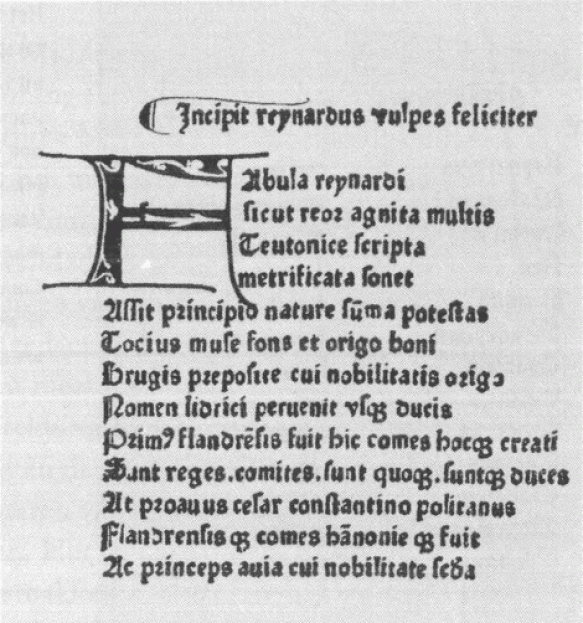 Incipit reynardus vulpes feliciter
FAbula reynardi
sicut reor agnita multis
Teutonice scripta
metrificata sonet
Assit principio nature sūma potestas
Tocius muse fons et origo boni
Brugis preposite cui nobilitatis origo
Nomen lidrici peruenit vsqꝫ ducis
Primꝰ flandrēsis fuit hic comes hocqꝫ creati
Sunt reges.comites.sunt quoqꝫ.suntqꝫ duces
At proauus cesar constantino politanus
Flandrensis qꝫ comes hānonie qꝫ fuit
Ac princeps auia cui nobilitate scḋa